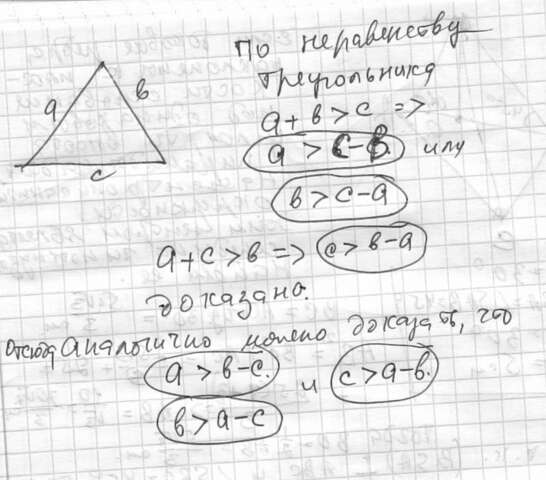 По неравенству
треугольника
a
в
c
a + в > c =>
a > c - в. или
в > c - a
a + c > в => c > в - a
доказано.
Отсюда аналогично можно доказать, что
a > в - c. и c > a - в.
в > a - c